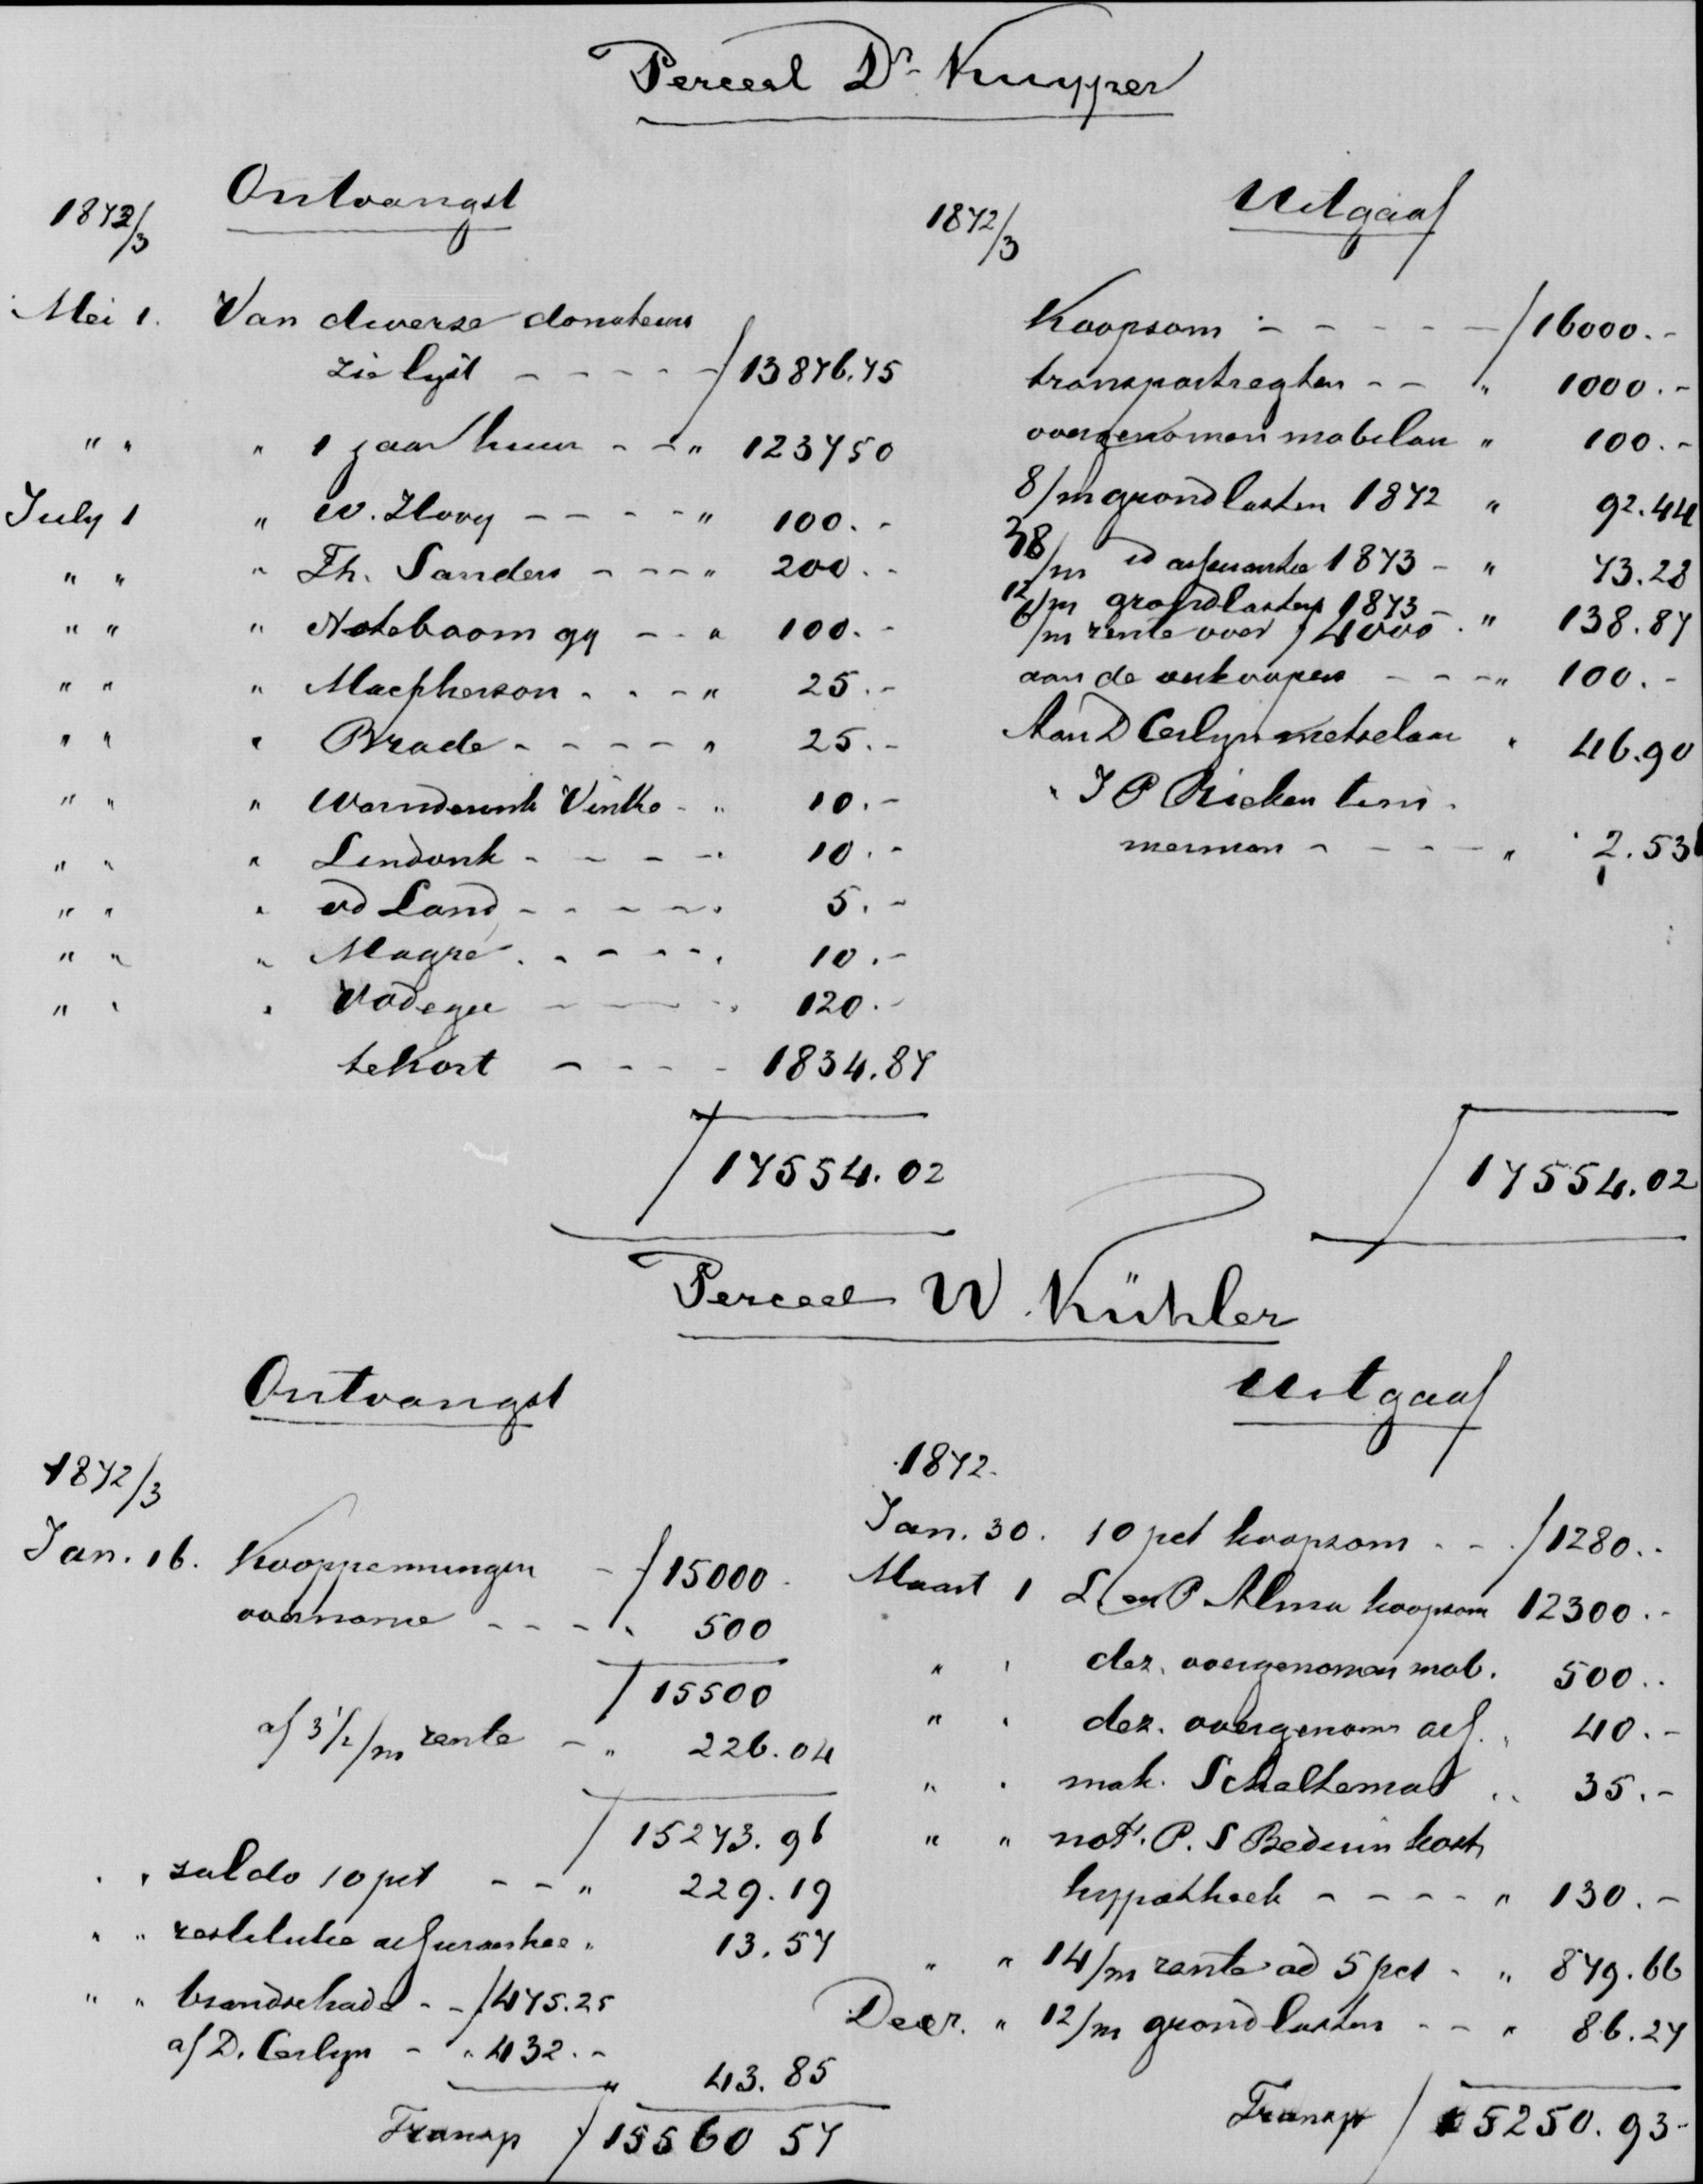 Perceel Dr Kuyper
Ontvangst
1872/3
Mei 1. Van diverse donateurs
zie lyst - - - - - f 13876.75
" " " 1 jaar huur - - " 1237 50
July 1 " W. Hovy - - - - " 100. -
" " " Th. Sanders - - - " 200. -
" " " Noteboom qq - - " 100. -
" " " Macpherson - - - " 25. -
" " " Brade - - - - - " 25. -
" " " Warnderink Vinke - " 10. -
" " " Lindonk - - - - - 10. -
" " " vd Land - - - - - 5. -
" " " Magré - - - - - 10. -
" " " Vodegel - - - - 120. -
tekort - - - - 1834.87
f 17554.02
Uitgaaf
1872/3
Koopsom - - - - - f 16000. -
transportregten - - " 1000. -
overgenomen mobelair " 100. -
8/m grondlasten 1872 " 92.44
38/m id assurantie 1873 - " 73.28
12/m grondlasten 1873 - "
6/m rente over f 4000 - " 138.87
aan de verkoopers - - - " 100. -
Aan D Cerlyn metselaar " 46.90
" J P Ricken tim-
merman - - - - " 2.53
f 17554.02
Perceel W. Kühler
Ontvangst
1872/3
Jan. 16. Kooppenningen - f 15000 -
overname - - - - " 500
f 15500
af 3 1/2/m rente - " 226.04
f 15273.96
" " saldo 10 pct - - " 229.19
" " restitutie assurantie " 13.57
" " brandschade - - f 475.25
af D. Cerlyn - " 432. -
" 43.85
Transp f 15560 57
Uitgaaf
1872.
Jan. 30. 10 pct koopsom - - f 1280. -
Maart 1 L en P Alma koopsom 12300. -
" " dez. overgenomen mob. 500. -
" " dez. overgenom ass. " 40. -
" " mak. Scheltema " 35. -
" " nots. P. S Beduin kosten
hypotheek - - - - " 130. -
" " 14/m rente ad 5 pct - " 879.66
Decr. " 12/m grondlasten - - " 86.27
Transp f 15250.93 -